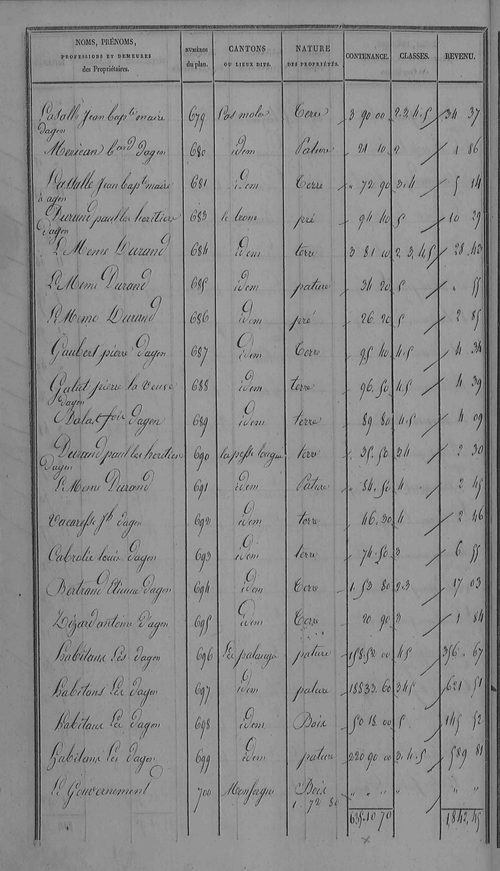 NOMS, PRÉNOMS, PROFESSIONS ET DEMEURES des Propriétaires. NUMÉROS du plan. CANTONS OU LIEUX DITS. NATURE DES PROPRIÉTÉS. CONTENANCE. CLASSES. REVENU.
Lasalle Jean bapte maire dagen 679 Terre 3 90 00 2.3.4.5 34 37
dagen 680 idem Pature 21 10 2 1 86
Lassalle Jean bapte maire à agen 681 idem Terre 72 90 3.4 5 14
Durand paul les heritiers dagen 683 pré 94 40 5 10 39
Le Meme Durand 684 idem terre 3 81 10 2 3.4.5 28.43
Le Meme Durand 685 idem pature 34 20 5 55
Le Meme Durand 686 idem pré 26 20 5 2 85
Gaubert pierre dagen 687 idem Terre 95 40 4.5 4 34
Galut pierre la veuve dagen 688 idem terre 96.50 4.5 4 39
dagen 689 idem terre 89 80 4.5 4 09
Durand paul les heritiers dagen 690 terre 35.50 3.4 2 30
Le Meme Durand 691 idem Pature 84.50 4 2 45
dagen 692 idem terre 46.30 4 2 46
Cabrolie louis dagen 693 idem terre 74.50 3 6 55
Bertrand Etienne dagen 694 idem Terre 1.53 80 2.3 17 03
Lizard antoine dagen 695 idem Terre 20 90 3 1 84
habitans Les dagen 696 pature 158.52 00 4.5 356.67
habitans Les dagen 697 idem pature 185 33.60 3.4.5 621 51
habitans Les dagen 698 idem Bois 50 18 00 5 145 52
habitans Les dagen 699 idem pature 230 90 00 3.4.5 589 81
Le Gouvernement 700 Bois
1.72 80
635.10 70 1842,45